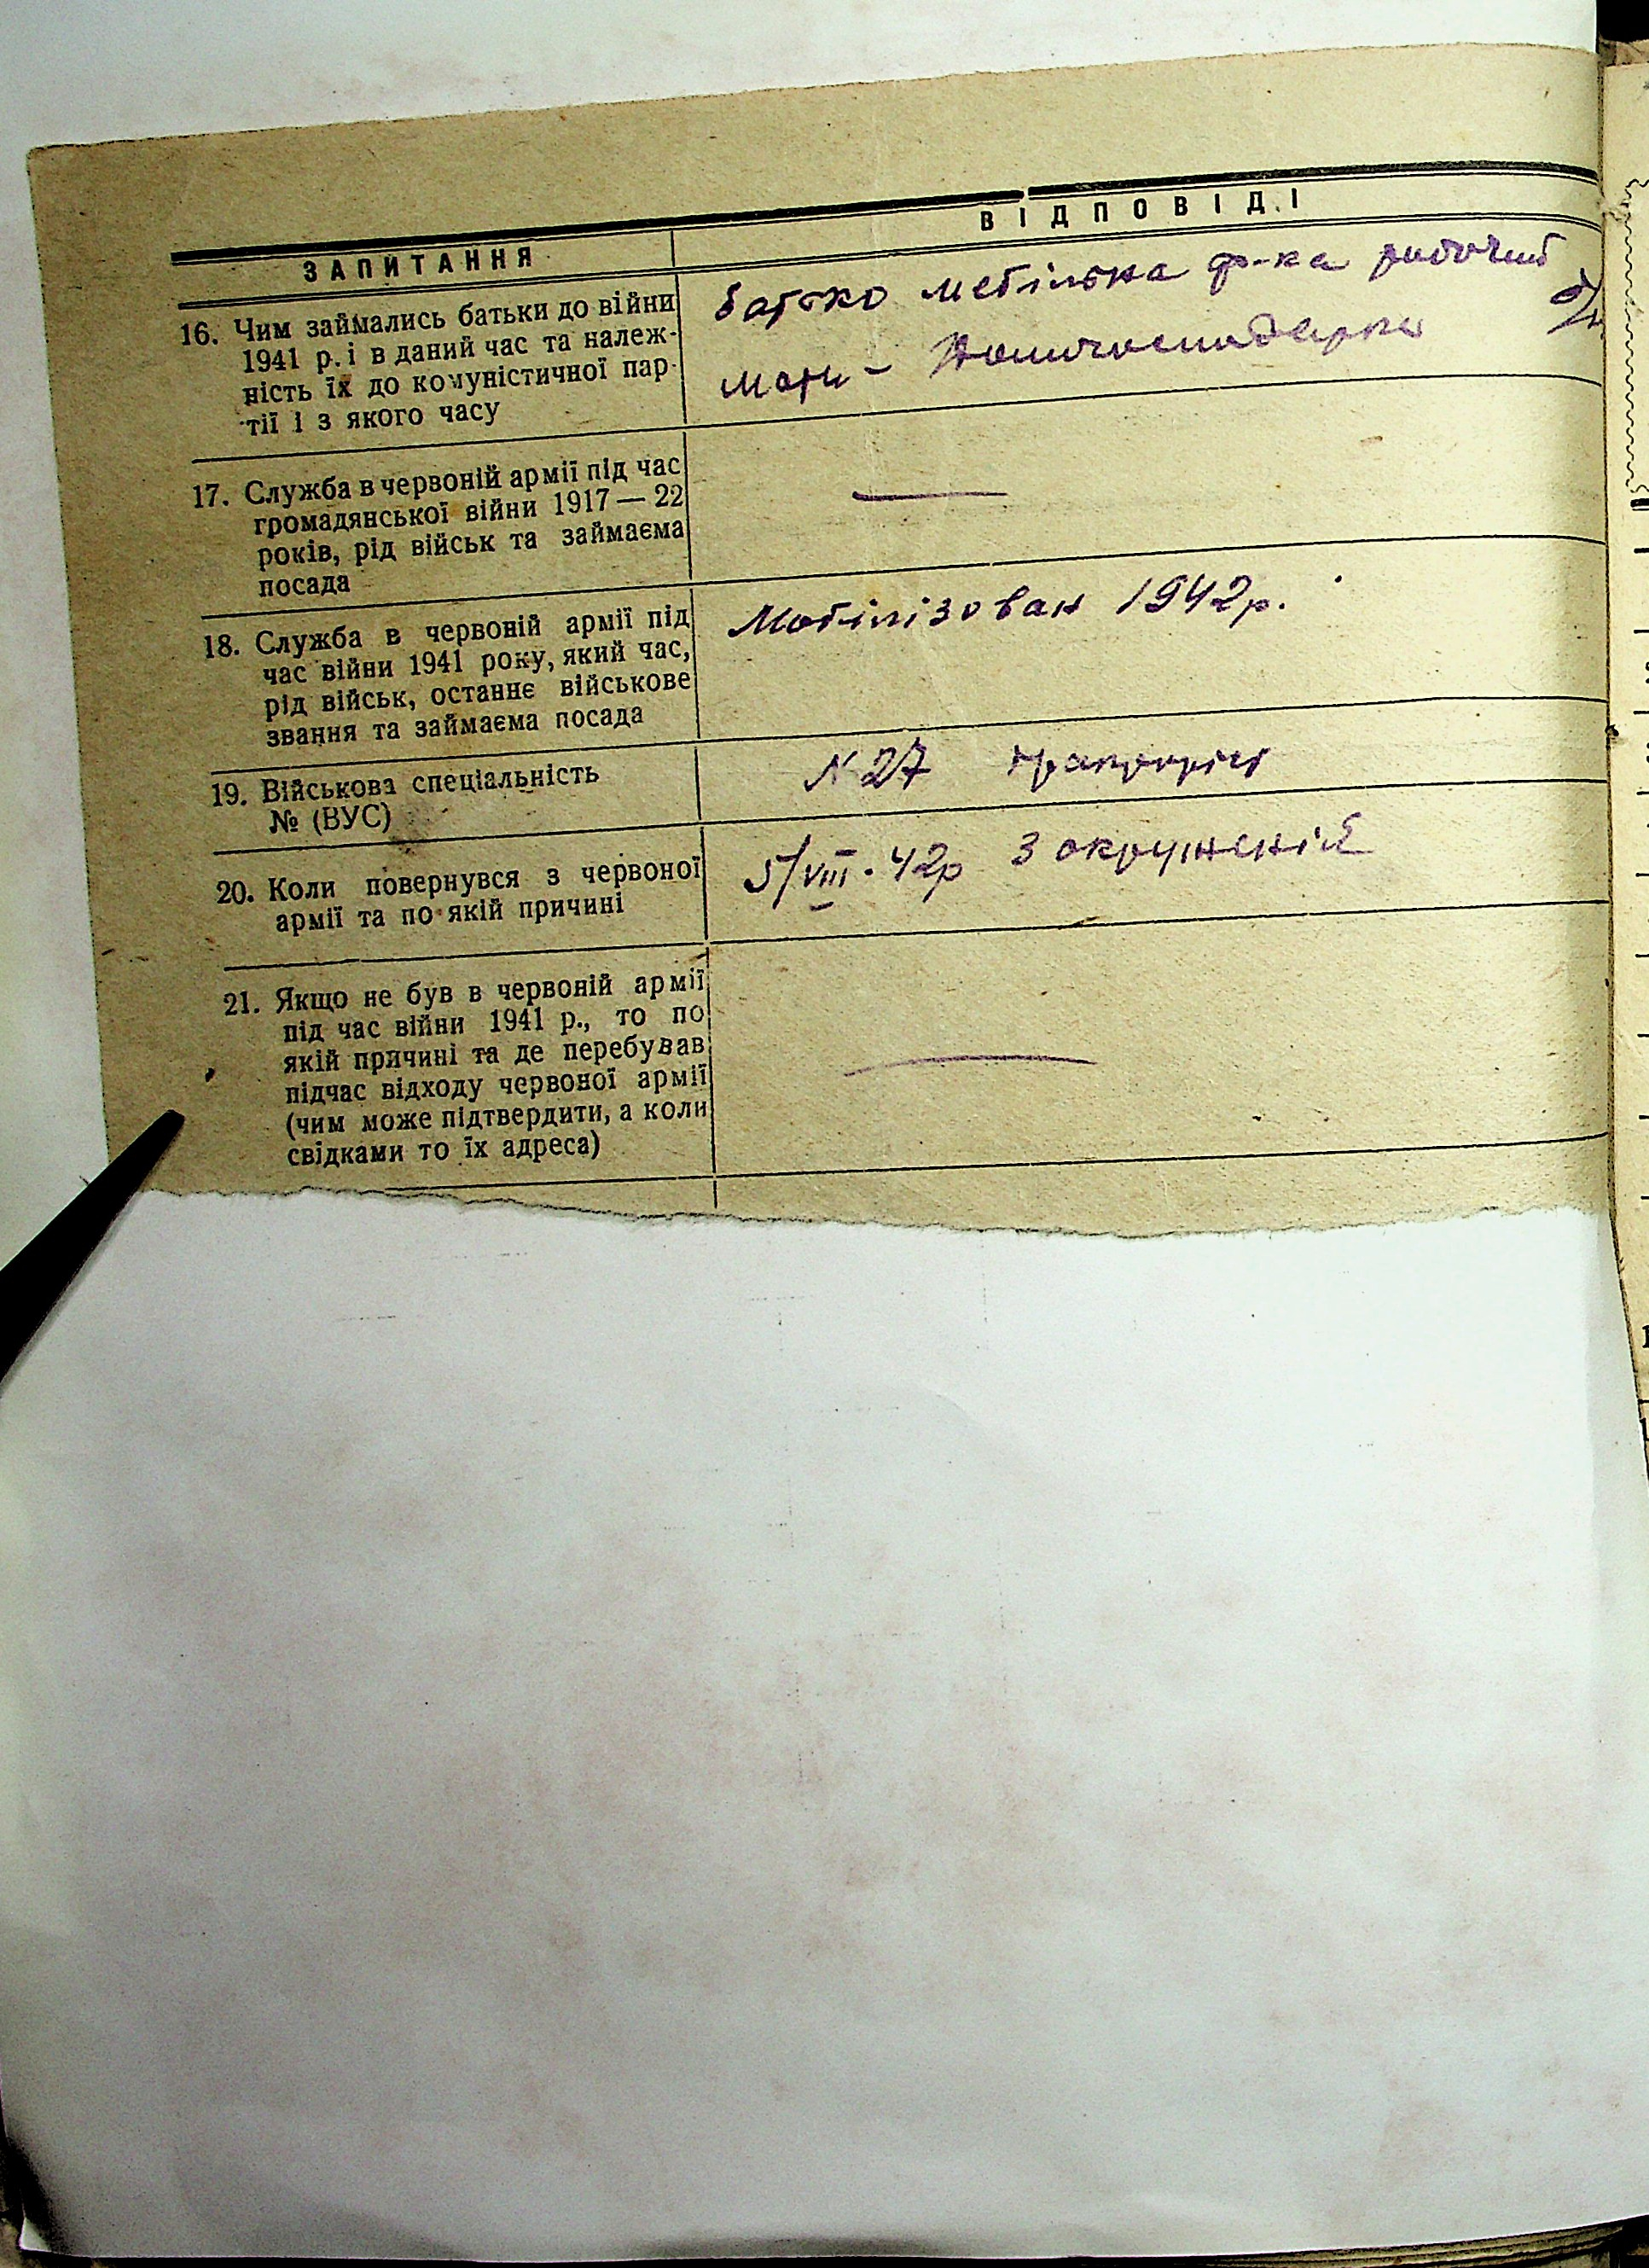 ЗАПИТАННЯ
ВІДПОВІДІ
16. Чим займались батьки до війни
1941 р. і в даний час та належ-
ність їх до комуністичної пар-
тії і з якого часу
батько мебільна ф-ка робочий б/п
мати – домогосподарка
17. Служба в червоній армії під час
громадянської війни 1917 — 22
років, рід військ та займаєма
посада
—
18. Служба в червоній армії під
час війни 1941 року, який час,
рід військ, останнє військове
звання та займаєма посада
Мобілізован 1942р.
19. Військова спеціальність
№ (ВУС)
N 27
20. Коли повернувся з червоної
армії та по якій причині
5/VIII. 42р З окруженій
21. Якщо не був в червоній армії
під час війни 1941 р., то по
якій причині та де перебував
підчас відходу червоної армії
(чим може підтвердити, а коли
свідками то їх адреса)
—